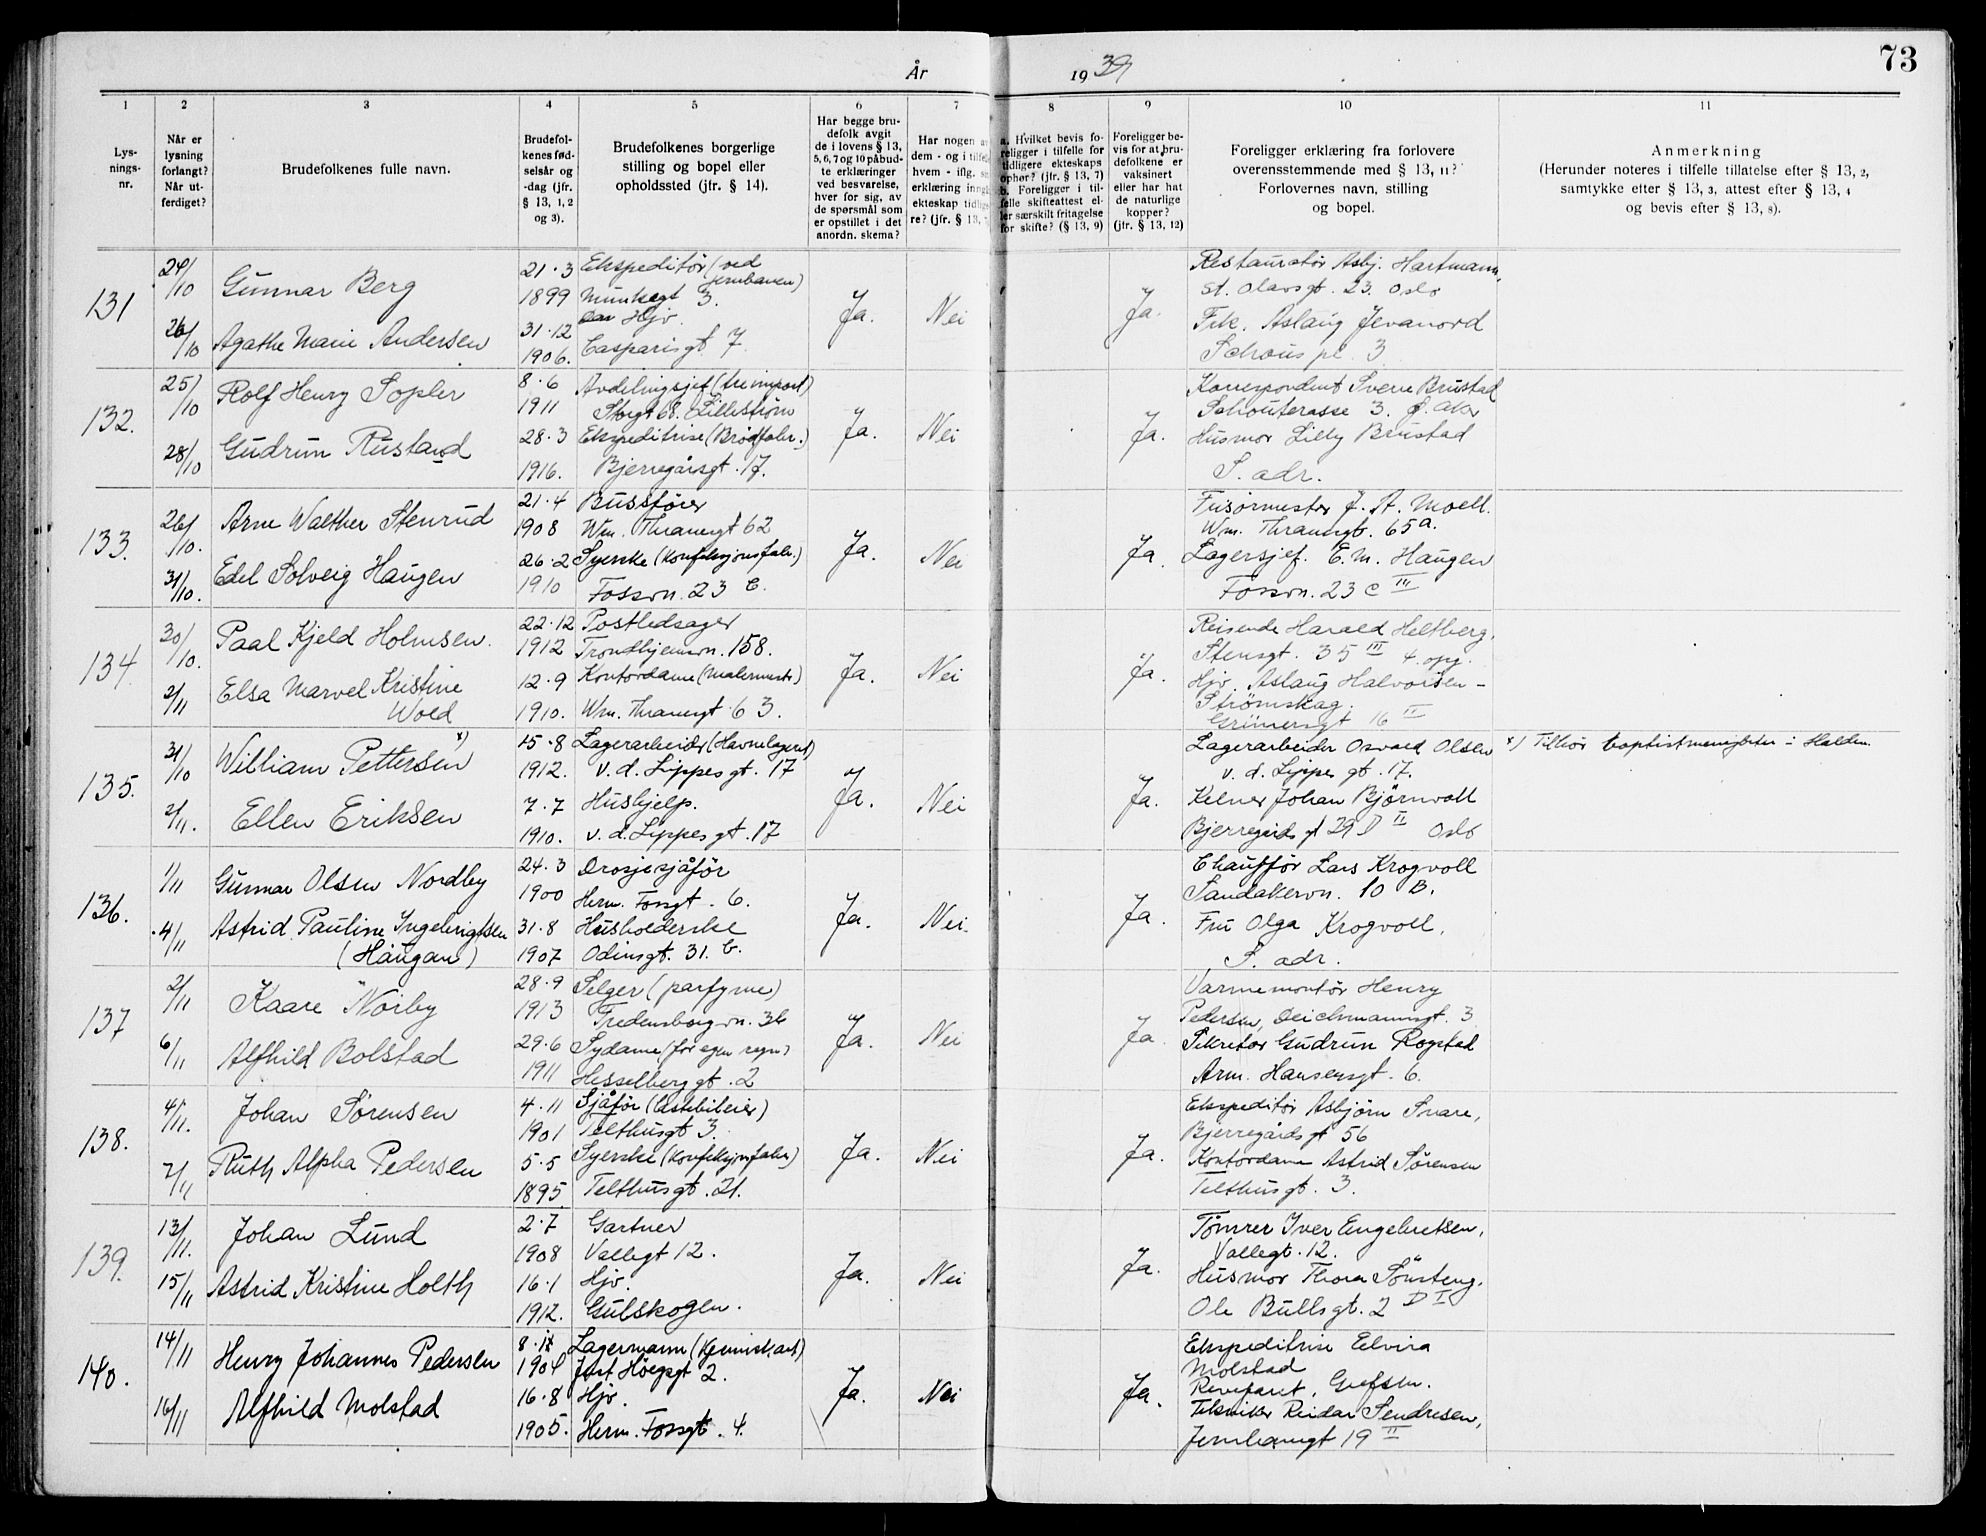 73
År 1939
1 2 3 4 5 6 7 8 9 10 11
Lys-
nings-
nr.
Når er
lysning
forlangt?
Når ut-
ferdiget?
Brudefolkenes fulle navn.
Brudefol-
kenes fød-
selsår og
-dag (jfr.
§ 13, 1, 2
og 3).
Brudefolkenes borgerlige
stilling og bopel eller
opholdssted (jfr. § 14).
Har begge bru-
defolk avgit
de i lovens § 13,
5, 6, 7 og 10 påbud-
te erklæringer
ved besvarelse,
hver for sig, av
de spørsmål som
er opstillet i det
anordn. skema?
Har nogen av
dem - og i tilfelle
hvem - iflg.
erklæring inng.
ekteskap tidlig
re? (jfr. § 13,
a. Hvilket bevis fo-
religger i tilfelle for
tidligere ekteskaps
ophør? (jfr. § 13, 7)
b. Foreligger i til-
felle skifteattest el-
ler særskilt fritagelse
for skifte? (§ 13, 9)
Foreligger be-
vis for at bru-
defolkene er
vaksinert
eller har hat
de naturlige
kopper?
(jfr. § 13, 12)
Foreligger erklæring fra forlovere
overensstemmende med § 13, 11?
Forlovernes navn, stilling
og bopel.
Anmerkning
(Herunder noteres i tilfelle tillatelse efter § 13, 2,
samtykke etter § 13, 3, attest efter § 13, 4
og bevis efter § 13, 8).
131
24/10
Gunnar Berg
21.3
1899
Ekspeditör (ved
jernbanen)
Munkegt 3.
26/10
Agathe Marie Andersen
31.12
1906.
Hjv.
Casparisgt 7.
Ja.
Nei
Ja.
Restauratör Asbj. Hartmann,
St. Olavsgt. 23. Oslo
Frk. Aslaug Jevanord
Schous pl. 3
132.
25/10
Rolf Henry Sopler
8.6
1911
Avdelingsjef (treimport)
Storgt 68. Lilleström
28/10
Gudrun Rustand
28.3
1916.
Ekspeditrise (Brödfabr.)
Bjerregårsgt. 17.
Ja.
Nei
Ja.
Korrespondent Sverre Brustad
Schouterasse 3. Ö. Aker
Husmor Lilly Brustad
S. adr.
133.
26/10.
Arne Walther Stenrud
21.4
1908
Bussförer
Wm. Thranesgt 62
31/10.
Edel Solveig Haugen
26.2
1910
Syerske (Konfeksjonsfabr.)
Fossvn. 23 C.
Ja.
Nei
Ja.
Frisörmester J. A. Moell.
Wm. Thranesgt. 65a.
Lagersjef. E. M. Haugen
Fossvn. 23 c III
134
30/10.
Paal Kjeld Holmsen.
22.12
1912
Postledsager
Trondhjemsvn. 158.
2/11
Elsa Marvel Kristine
Wold
12.9
1910.
Kontordame (Malermestr)
Wm. Thranesgt 63.
Ja.
Nei
Ja.
Reisende Harald Heltberg.
Stensgt. 35 III 4. opg.
Hjv. Aslaug Halvorsen -
Strömskag.
Grünersgt 16 II
135.
31/10
William Pettersen x)
15.8
1912.
Lagerarbeider (Havnelageret)
v. d. Lippesgt. 17
2/11.
Ellen Eriksen
7.7
1910.
Hushjelp.
v. d. Lippesgt. 17
Ja.
Nei
Ja.
Lagerarbeider Osvald Olsen
v. d. Lippes gt. 17.
Kelner Johan Björnvoll
Bjerregårds gt 29 D II Oslo
x) Tilhör baptistmenigheten i Halden.
136.
1/11
Gunnar Olsen Nordby
24.3
1900
Drosjesjåför
Herm. Fossgt. 6.
4/11
Astrid Pauline Ingebrigtsen
(Haugan)
31.8
1907
Husholderske
Odinsgt. 31. b.
Ja.
Nei.
Ja.
Chauffför Lars Krogvoll
Sandakervn. 10 B.
Fru Olga Krogvoll,
S. adr.
137
2/11
Kaare Norby
28.9
1913
Selger (parfyme)
Fredensborgvn. 36
6/11
Alfhild Bolstad
29.6
1911
Sydame (for egen regn)
Hesselberggt. 2
Ja.
Nei
Ja.
Varmemontör Henry
Pedersen, Deichmannsgt. 3
Sekretær Gudrun Rogstad
Arm. Hansensgt. 6.
138.
4/11.
Johan Sørensen
4.11
1901
Sjåför (Östebileier)
Telthusgt 3.
7/11
Ruth Alpha Pedersen
5.5
1895
Syerske (Konfeksjonsfabr)
Telthusgt. 21.
Ja.
Nei
Ja.
Ekspeditör Asbjörn Snare,
Bjerregårdsgt 56
Kontordame Astrid Sörensen
Telthusgt. 3.
139.
13/11.
Johan Lund
2.7
1908
Gartner
Vallegt 12.
15/11
Astrid Kristine Holth
16.1
1912.
Hjv.
Gulskogen.
Ja.
Nei
Ja.
Tömrer Iver Engebretsen,
Vallegt. 12.
Husmor Thora Sönsteng.
Ole Bullsgt. 2 D I
140.
14/11
Henry Johannes Pedersen
8.12
1904
Lagermann
Just Höegsgt 2.
16/11
Alfhild Molstad
16.8
1905.
Hjv.
Herm. Fossgt. 4.
Ja.
Nei
Ja.
Ekspeditrise Elvira
Molstad
Grefsen.
Tekniker Reidar Sendresen,
Jernbanegt 19 II